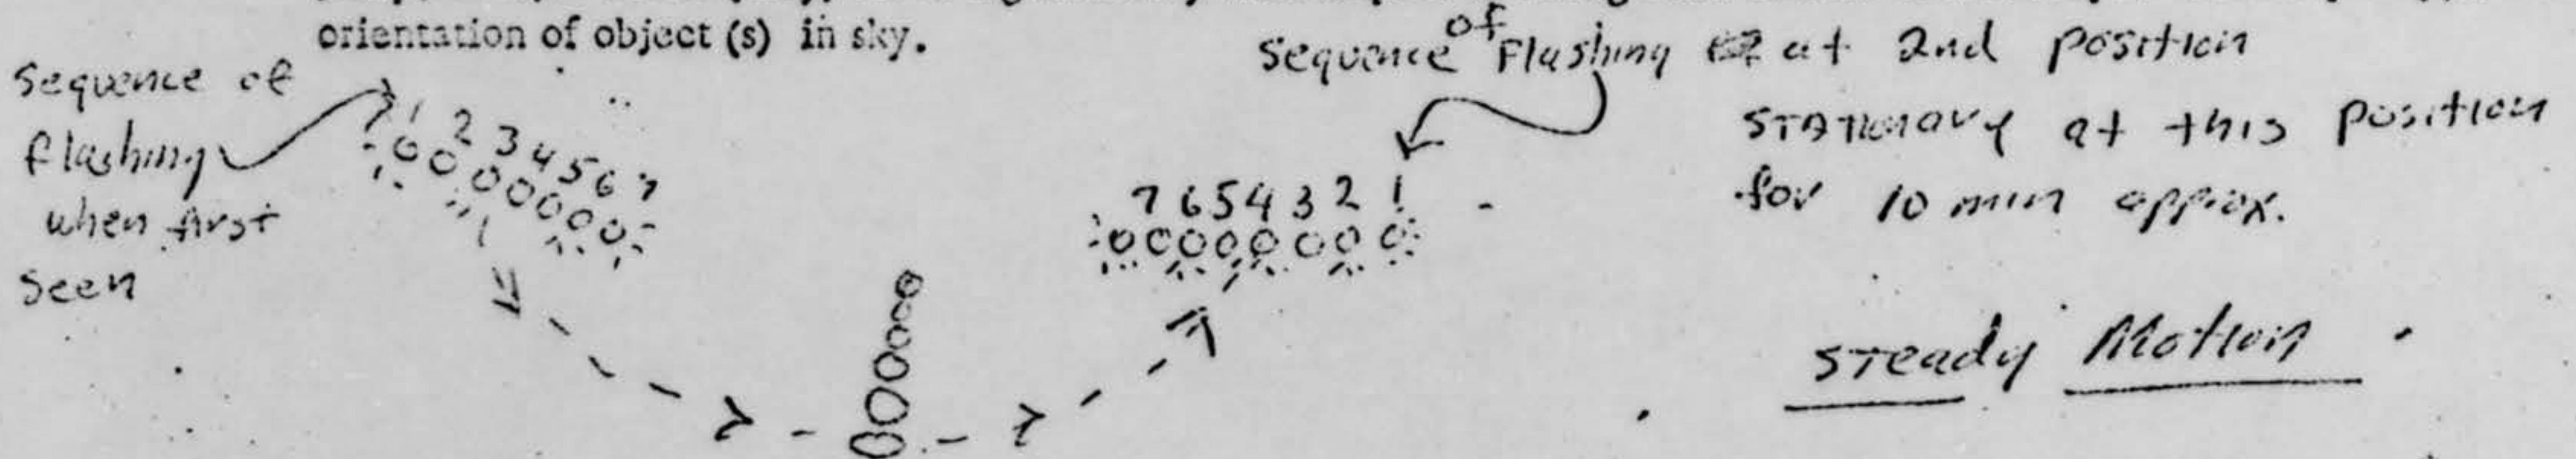 orientation of object (s) in sky.
Sequence of
flashing
when first
seen
1 2 3 4 5 6 7
Sequence of Flashing at 2nd position
7 6 5 4 3 2 1
STATIONARY at this position
for 10 min approx.
STEADY Motion